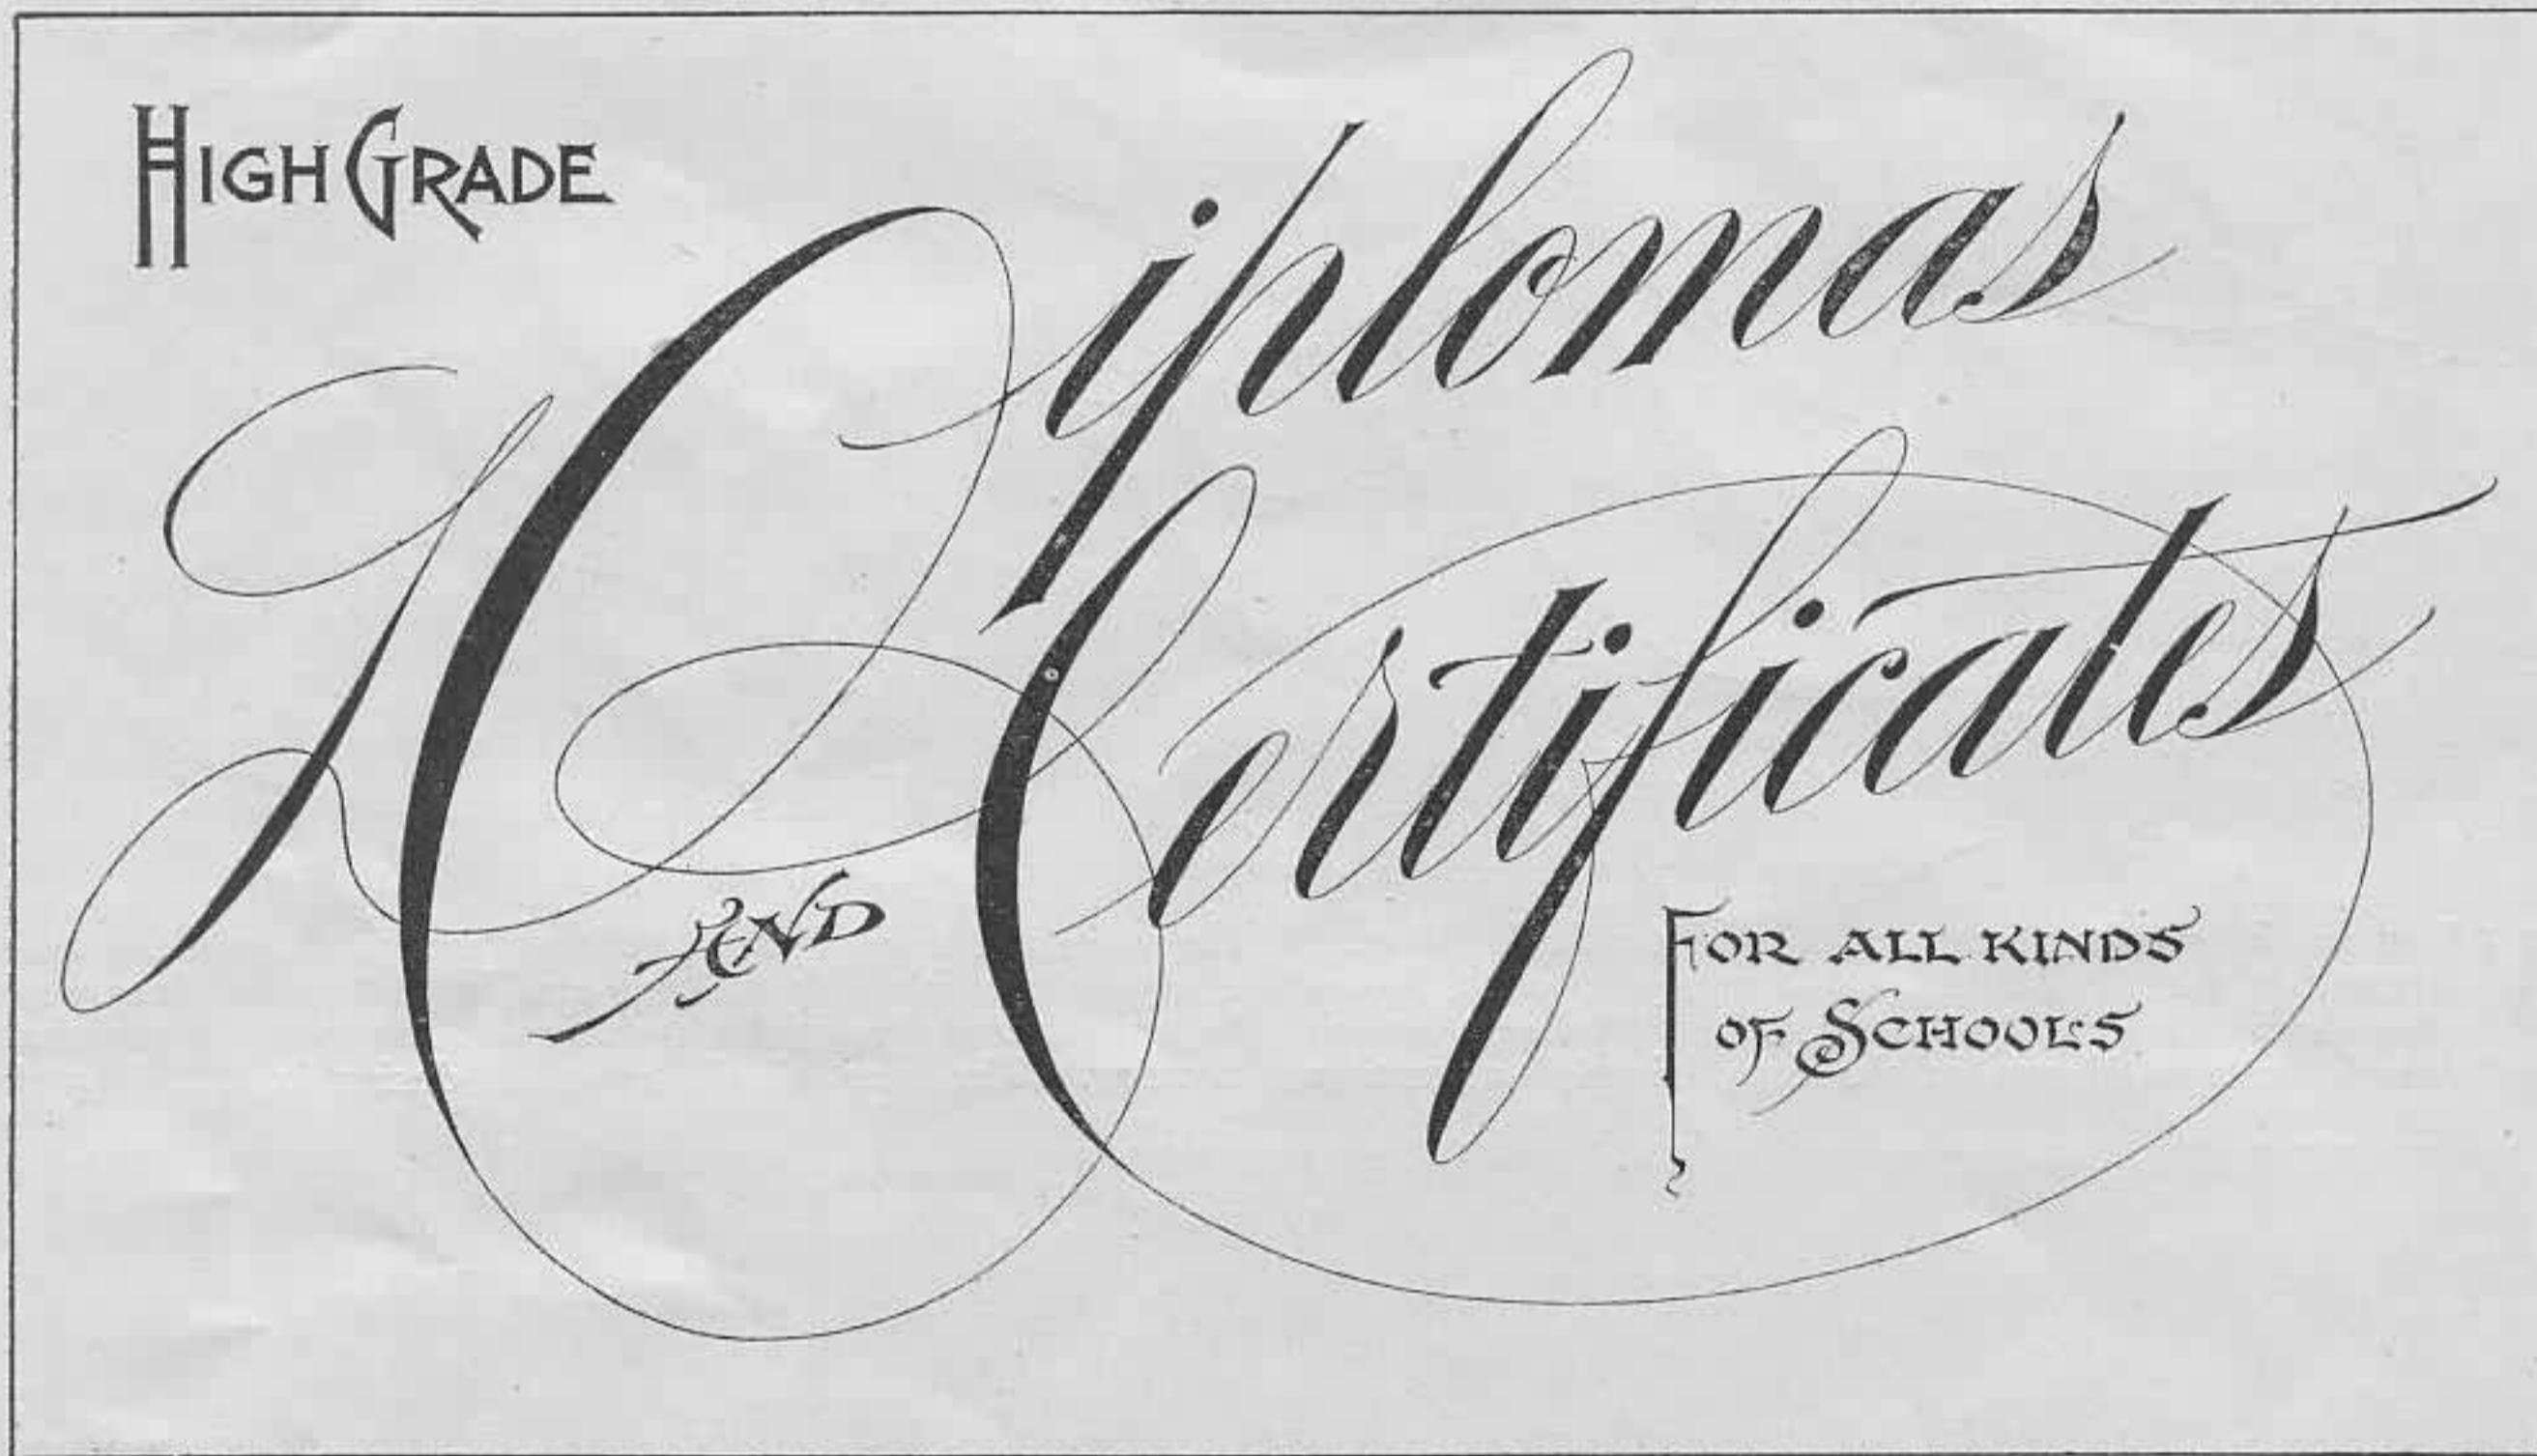 HIGH GRADE
Diplomas
AND
Certificates
FOR ALL KINDS
OF SCHOOLS